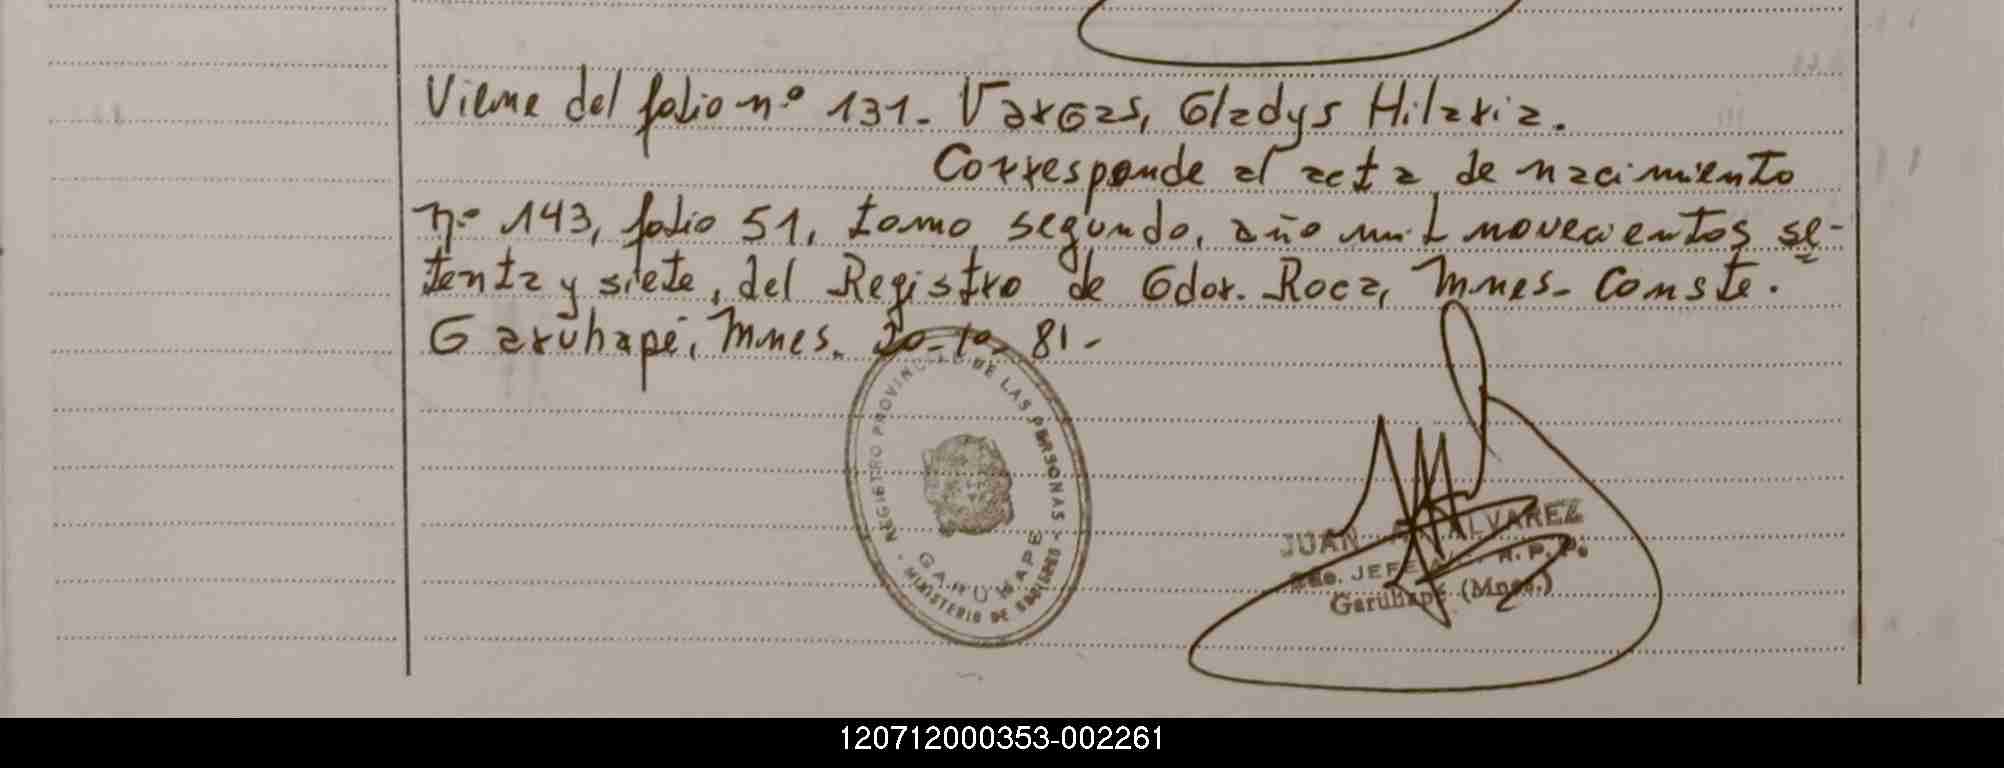 Viene del folio nº 131. Vargas, Gladys Hilaria.
Corresponde al acta de nacimiento
nº 143, folio 51, tomo segundo, año mil novecientos se-
tenta y siete, del Registro de Gdor. Roca, Mnes. Conste.
Garuhapé, Mnes. 20-10-81-
REGISTRO PROVINCIAL DE LAS PERSONAS
GARUHAPE
MINISTERIO DE GOBIERNO
JUAN ALVAREZ
JEFE R. P. P.
Garuhapé (Mnes.)
120712000353-002261